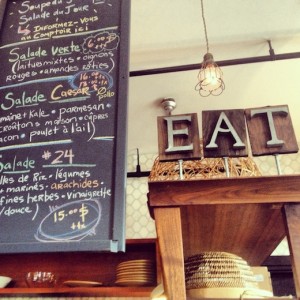 Soupe du J
Salade du Jour
↳ Informez-vous
au Comptoir ici!
Salade Verte
(laitues mixtes • oignons
rouges • amandes rôties)
Salade Caesar
romaine + Kale • parmesan •
croûtons maison • câpres
bacon • poulet à l'ail)
Salade #24
Riz • légumes
marinés • arachides •
fines herbes • Vinaigrette
douce)
15.00$
EAT